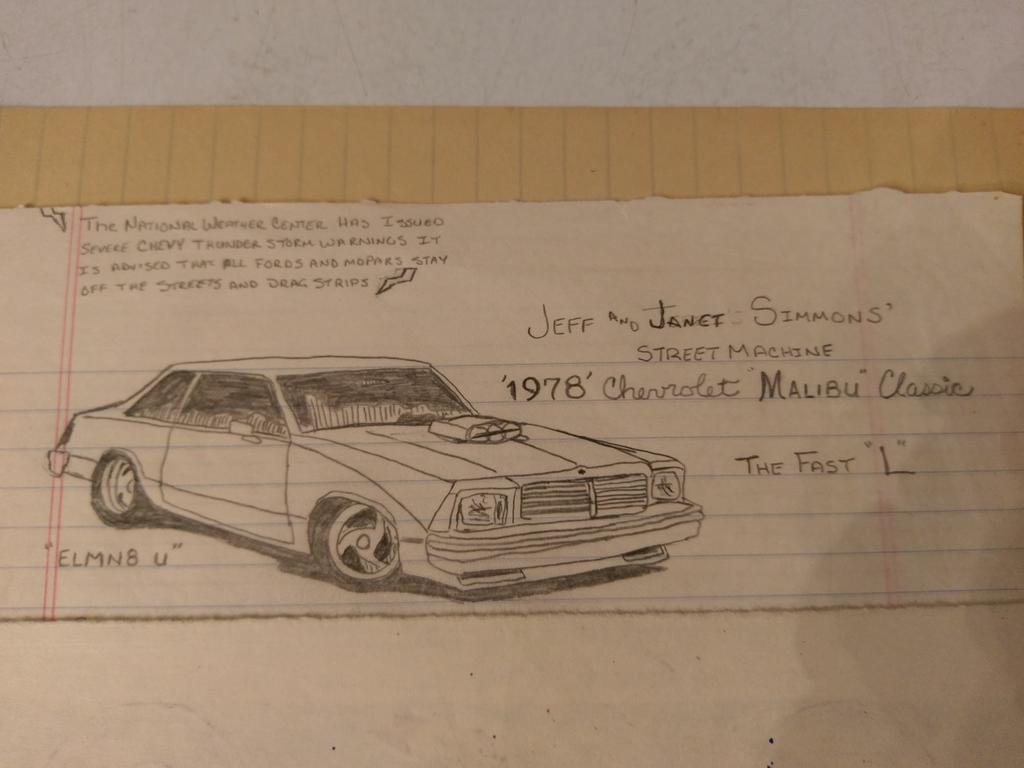 THE NATIONAL WEATHER CENTER HAS ISSUED
SEVERE CHEVY THUNDER STORM WARNINGS IT
IS ADVISED THAT ALL FORDS AND MOPARS STAY
OFF THE STREETS AND DRAG STRIPS
JEFF AND JANET SIMMONS'
STREET MACHINE
'1978' Chevrolet "MALIBU" Classic
THE FAST "L"
"ELMN8 U"